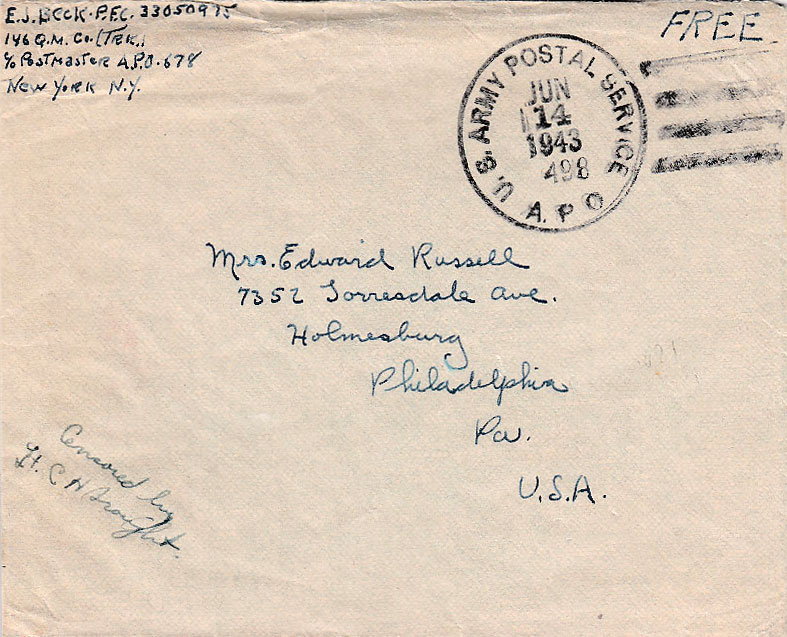 E.J. BECK. P.F.C. 33050975
146 Q.M. Co. (TRK.)
c/o POSTMASTER A.P.O. 678
NEW YORK N.Y.
FREE
U.S. ARMY POSTAL SERVICE
JUN
14
1943
498
A.P.O
Mrs. Edward Russell
7352 Torresdale Ave.
Holmesburg
Philadelphia
Pa.
U.S.A.
Censored by
Lt. C H